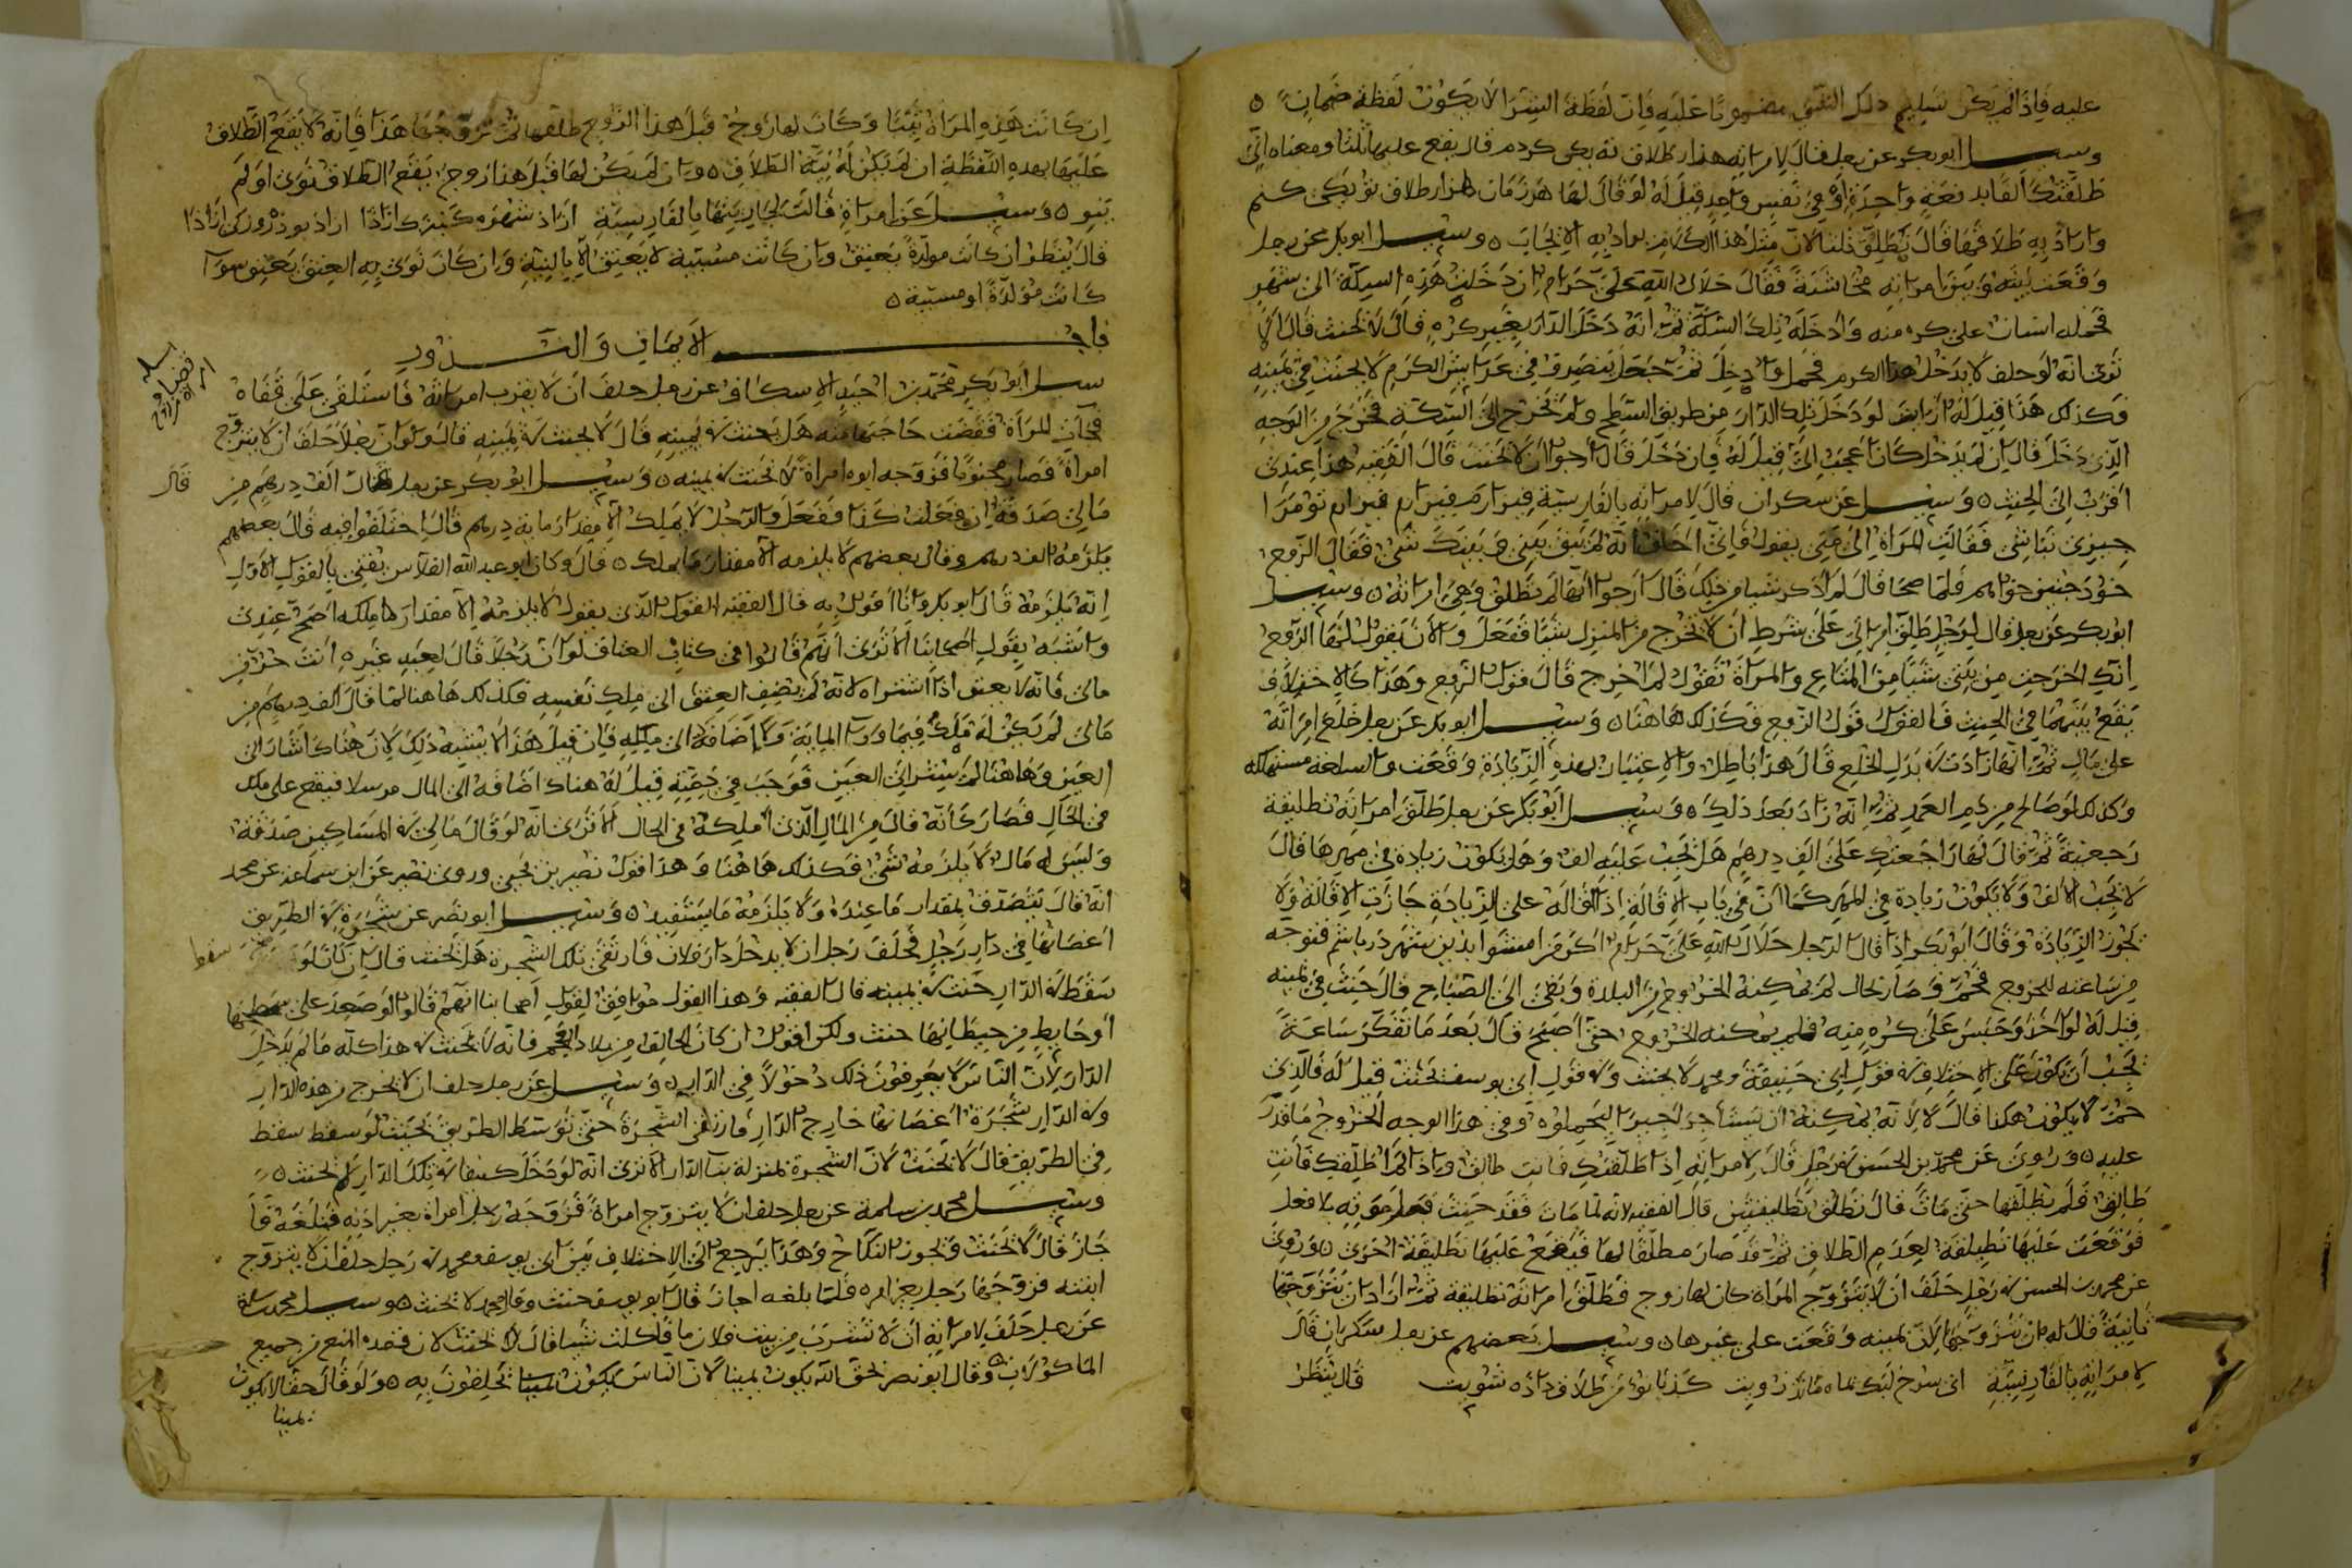 عليه فاذا لم يكن تسليم ذلك الشيء مضمونا عليه فان لفظة الشرا لا يكون لفظة ضمان ه
وسيل ابو بكر عن رجل قال لامراته هزار طلاق ته يكى كردم قال يقع عليها ثلثا ومعناه انى
طلقتك الفا بدفعة واحدة او في نفس واحد قيل له لو قال لها هزار طلاق تو يكى كنم
واراد به طلاقها قال تطلق ثلثا لان مثل هذا الكلام يراد به الايجاب ه وسيل ابو بكر عن رجل
وقعت بينه وبين امراته مخاشنة فقال حلال الله على حرام ان دخلت هذه السكة الى شهر
فحمله انسان على كره منه وادخله تلك السكة ثم انه دخل الدار بغير كره قال لا يحنث قال الا
ترى انه لو حلف لا يدخل هذا الكرم فحمل وادخل ثم جعل يتصرف في عرايش الكرم لا يحنث في يمينه
فكذلك هذا قيل له ارايت لو دخل تلك الدار من طريق السطح ولم يخرج الى السكة فخرج من الوجه
الذى دخل قال ان لم يدخل كان اعجب الى قيل له فان دخل قال ارجوا ان لا يحنث قال الفقيه هذا عندى
اقرب الى الحنث ه وسيل عن سكران قال لامراته بالفارسية
فقالت المراة الى متى يقول فانى اخاف انه لم يبق بينى وبينك شى فقال الزوج
فلما صحا قال لم اذكر شيا من ذلك قال ارجوا انها لم تطلق وهى امراته ه وسيل
ابو بكر عن رجل قال لرجل طلق امراتى على شرط ان لا تخرج من المنزل شيئا ففعل والان يقول لها الزوج
انك اخرجت من بيتى شيئا من المتاع والمراة تقول لم اخرج قال قول الزوج وهذا كالاختلاف
يقع بينهما في الحنث فالقول قول الزوج فكذلك هاهنا ه وسيل ابو بكر عن رجل خلع امراته
على مال ثم انها زادت في بدل الخلع قال هذا باطل والاعتياض بهذه الزيادة وقعت والسلعة مستهلكة
وكذلك لو صالح من دم العمد ثم انه زاد بعد ذلك ه وسيل ابو بكر عن رجل طلق امراته تطليقة
رجعية ثم قال لها راجعتك على الف درهم هل يجب عليه الف وهل يكون زيادة في مهرها قال
لا يجب الالف ولا يكون زيادة في المهر كما ان في باب الاقالة اذا اقاله على الزيادة جازت الاقالة ولا
يجوز الزيادة وقال ابو بكر اذا قال الرجل حلال الله على حرام اكر من امشب بدين شهر در باشم فتوجه
من ساعته للخروج فحم وصار بحال لم يمكنه الخروج من البلدة وبقى الى الصباح قال حنث في يمينه
قيل له لو اخذ وحبس على كره منه فلم يمكنه الخروج حتى اصبح قال بعد ما تفكر ساعة
يجب ان يكون على الاختلاف في قول ابى حنيفة ومحمد لا يحنث وفي قول ابى يوسف يحنث فقيل له فالذى
حم لا يكون هكذا قال لا لانه يمكنه ان يستاجر اجيرا ليحملوه وفي هذا الوجه الخروج ما قدر
عليه ه وروى عن محمد بن الحسن في رجل قال لامراته اذا طلقتك فانت طالق واذا لم اطلقك فانت
طالق فلم يطلقها حتى مات قال تطلق تطليقتين قال الفقيه لانه لما مات فقد حنث
فوقعت عليها تطليقة لعدم الطلاق ثم قد صار مطلقا لها فيقع عليها تطليقة اخرى ه وروى
عن محمد بن الحسن في رجل حلف ان لا يتزوج المراة كان لها زوج فطلق امراته تطليقة ثم اراد ان يتزوجها
ثانية قال له ان يتزوجها لان يمينه وقعت على غيرها ه وسيل بعضهم عن رجل سكران قال
لامراته بالفارسية قال ينظر
ان كانت هذه المراة ثيبا وكان لها زوج قبل هذا الزوج طلقها ثم تزوجها هذا فانه لا يقع الطلاق
عليها بهذه اللفظة ان لم يكن له نية الطلاق ه وان لم يكن لها قبل هذا زوج يقع الطلاق نوى او لم
ينو ه وسيل عن امراة قالت لجاريتها بالفارسية
قال ينظر ان كانت مولدة يعتق وان كانت مسبية لا يعتق الا بالنية وان كان نوى به العتق يعتق سوا
كانت مولدة او مسبية ه
باب الايمان والنذور
سيل ابو بكر محمد بن احمد الاسكاف عن رجل حلف ان لا يقرب امراته فاستلقى على قفاه
فجات المراة فقضت حاجتها منه هل يحنث في يمينه قال لا يحنث في يمينه قال ولو ان رجلا حلف ان لا يتزوج
امراة فصار مجنونا فزوجه ابوه امراة لا يحنث في يمينه ه وسيل ابو بكر عن رجل قال الف درهم من
قال
مالى صدقة ان فعلت كذا ففعل والرجل لا يملك الا مقدار ماية درهم قال اختلفوا فيه قال بعضهم
يلزمه الف درهم وقال بعضهم لا يلزمه الا مقدار ما يملك ه قال وكان ابو عبد الله القلاس يفتى بالقول الاول
انه يلزمه قال ابو بكر وانا اقول به قال الفقيه القول الذى يقول لا يلزمه الا مقدار ما ملكه اصح عندى
واشبه بقول اصحابنا الا ترى انهم قالوا في كتاب العتاق لو ان رجلا قال لعبد غيره انت حر من
مالى فانه لا يعتق اذا اشتراه لانه لم يضف العتق الى ملك نفسه فكذلك هاهنا لما قال الف درهم من
مالى لم يكن له ملك فيما ورا الماية ولا اضافة الى ملكه فان قيل هذا لا يشبه ذلك لان هناك اشار الى
العين وهاهنا لم يشر الى العين فوجب في ذمته قيل له هناك اضافه الى المال مرسلا فيقع على ملك
في الحال فصار كانه قال من المال الذى املكه في الحال الا ترى انه لو قال مالى في المساكين صدقة
وليس له مال لا يلزمه شى فكذلك هاهنا وهذا قول نصير بن يحيى وروى نصير عن ابن سماعة عن محمد
انه قال يتصدق بمقدار ما عنده ولا يلزمه ما يستفيد ه وسيل ابو نصر عن شجرة في الطريق
اغصانها في دار رجل فحلف رجل ان لا يدخل دار فلان فارتقى تلك الشجرة هل يحنث قال ان كان لو
سقط
سقط في الدار حنث في يمينه قال الفقيه وهذا القول موافق لقول اصحابنا انهم قالوا لو صعد على سطحها
او حايط من حيطانها حنث ولكن اقول ان كان الحالف من بلاد العجم فانه لا يحنث في هذا كله ما لم يدخل
الدار لان الناس لا يعرفون ذلك دخولا في الدار ه وسيل عن رجل حلف ان لا يخرج من هذه الدار
وفي الدار شجرة اغصانها خارج الدار فارتقى الشجرة حتى توسط الطريق بحيث لو سقط سقط
في الطريق قال لا يحنث لان الشجرة بمنزلة بنا الدار الا ترى انه لو دخل كنيفا في تلك الدار لم يحنث ه
وسيل محمد بن سلمة عن رجل حلف ان لا يتزوج امراة فزوجه رجل امراة بغير اذنه فبلغه فا
جاز قال لا يحنث ويجوز النكاح وهذا يرجع الى الاختلاف بين ابى يوسف ومحمد في رجل حلف ان لا يزوج
ابنته فزوجها رجل بغير امره فلما بلغه اجاز قال ابو يوسف حنث وقال محمد لا يحنث ه وسيل محمد بن سلمة
عن رجل حلف لامراته ان لا تشرب من بيت فلان ما فاكلت شيئا قال لا يحنث لان قصده المنع من جميع
الماكولات ه وقال ابو نصر بحق الله يكون يمينا لان الناس يحلفون به ه ولو قال حقا لا يكون
يمينا